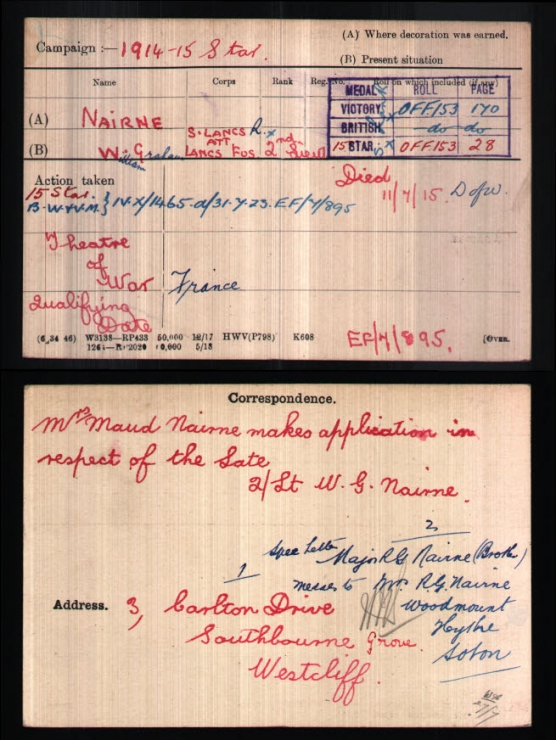 Campaign :— 1914-15 Star.
(A) Where decoration was earned.
(B) Present situation
Name Corps Rank Reg. No. Roll on which included (if any)
MEDAL ROLL PAGE
VICTORY OFF153 170
BRITISH -do- do
15 STAR OFF153 28
(A) NAIRNE
S. LANCS R. x
ATT
(B) W. Graham LANCS FUS 2nd Lieut
William
Action taken
Died
11/7/15. D of W.
15 Star.
B.W.&V.M. } IV.X/1465.d/31.7.23. EF/7/895
Theatre
of
War France
Qualifying
Date
EF/7/895.
(6 34 46) W3138—RP433 50,000 12/17 HWV(P798) K608 [OVER.
5/18
Correspondence.
Mrs Maud Nairne makes application in
respect of the late
2/Lt W. G. Nairne.
2
Spec Letter Major R G Nairne (Brother)
1 Mrs R.G. Nairne
Address. 3, Carlton Drive Woodmount
Southbourne Grove. Hythe
Westcliff. Soton